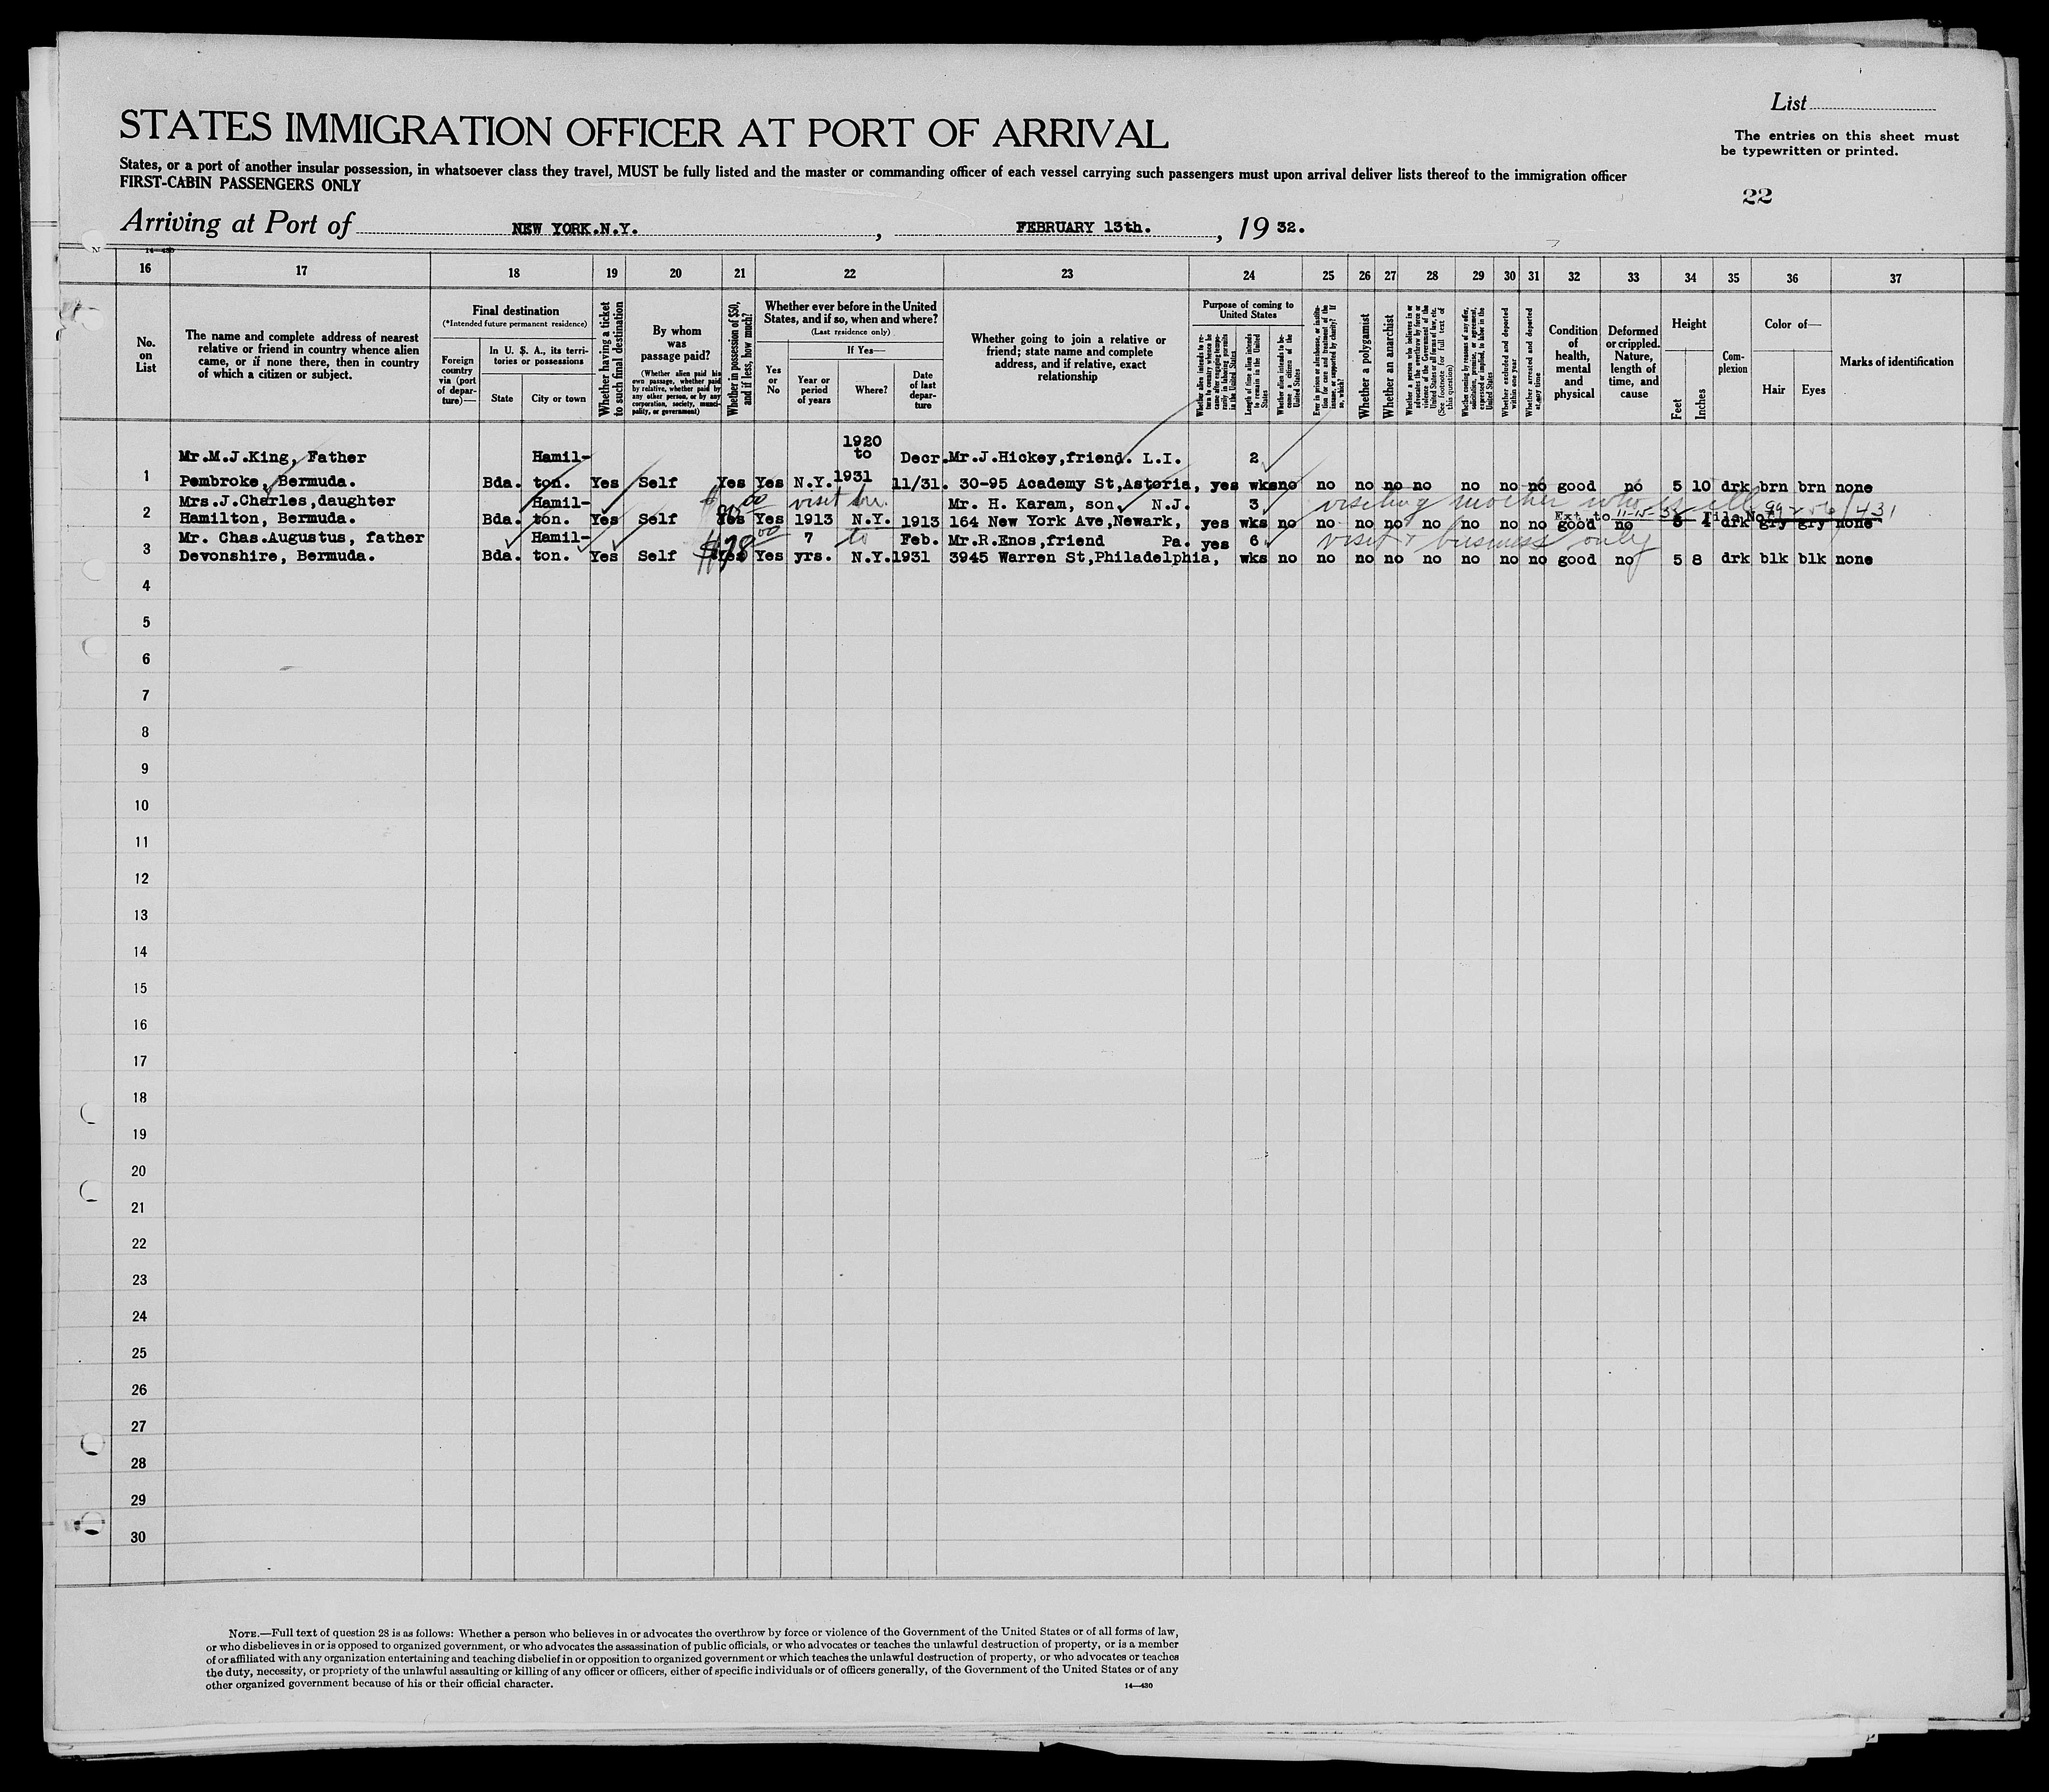 List
STATES IMMIGRATION OFFICER AT PORT OF ARRIVAL
The entries on this sheet must
be typewritten or printed.
States, or a port of another insular possession, in whatsoever class they travel, MUST be fully listed and the master or commanding officer of each vessel carrying such passengers must upon arrival deliver lists thereof to the immigration officer
FIRST-CABIN PASSENGERS ONLY
22
Arriving at Port of NEW YORK.N.Y. , FEBRUARY 13th. , 19 32.
14-430
16 17 18 19 20 21 22 23 24 25 26 27 28 29 30 31 32 33 34 35 36 37
No. on List
The name and complete address of nearest relative or friend in country whence alien came, or if none there, then in country of which a citizen or subject.
Final destination
(*Intended future permanent residence)
Foreign country via (port of departure)—
In U. S. A., its territories or possessions
State
City or town
Whether having a ticket to such final destination
By whom was passage paid?
(Whether alien paid his own passage, whether paid by relative, whether paid by any other person, or by any corporation, society, municipality, or government)
Whether in possession of $50, and if less, how much?
Whether ever before in the United States, and if so, when and where?
(Last residence only)
Yes or No
If Yes—
Year or period of years
Where?
Date of last departure
Whether going to join a relative or friend; state name and complete address, and if relative, exact relationship
Purpose of coming to United States
Whether alien intends to return to country whence he came after engaging temporarily in laboring pursuits in the United States
Length of time alien intends to remain in the United States
Whether alien intends to become a citizen of the United States
Ever in prison or almshouse, or institution for care and treatment of the insane, or supported by charity? If so, which?
Whether a polygamist
Whether an anarchist
Whether a person who believes in or advocates the overthrow by force or violence of the Government of the United States or all forms of law, etc. (See footnote for full text of this question)
Whether coming by reasons of any offer, solicitation, promise, or agreement, expressed or implied, to labor in the United States
Whether excluded and deported within one year
Whether arrested and deported at any time
Condition of health, mental and physical
Deformed or crippled. Nature, length of time, and cause
Height
Feet
Inches
Complexion
Color of—
Hair
Eyes
Marks of identification
1920
Mr.M.J.King, Father Hamil- to Decr. Mr.J.Hickey,friend. L.I. 2
1 Pembroke, Bermuda. Bda. ton. Yes Self Yes Yes N.Y. 1931 11/31. 30-95 Academy St,Astoria, yes wks no no no no no no no no good no 5 10 drk brn brn none
Mrs.J.Charles,daughter Hamil- visit Mr. H. Karam, son. N.J. 3 visiting mother who is ill
Ext to 11-15-32 File No. 99
2 Hamilton, Bermuda. Bda. ton. Yes Self Yes Yes 1913 N.Y. 1913 164 New York Ave,Newark, yes wks no no no no no no no no good no 5 drk gry gry none
Mr. Chas.Augustus, father Hamil- 7 to Feb. Mr.R.Enos,friend Pa. yes 6 visit & business only
3 Devonshire, Bermuda. Bda. ton. Yes Self $78 00 Yes Yes yrs. N.Y. 1931 3945 Warren St,Philadelphia, wks no no no no no no no no good no 5 8 drk blk blk none
4
5
6
7
8
9
10
11
12
13
14
15
16
17
18
19
20
21
22
23
24
25
26
27
28
29
30
NOTE.—Full text of question 28 is as follows: Whether a person who believes in or advocates the overthrow by force or violence of the Government of the United States or of all forms of law,
or who disbelieves in or is opposed to organized government, or who advocates the assassination of public officials, or who advocates or teaches the unlawful destruction of property, or is a member
of or affiliated with any organization entertaining and teaching disbelief in or opposition to organized government or which teaches the unlawful destruction of property, or who advocates or teaches
the duty, necessity, or propriety of the unlawful assaulting or killing of any officer or officers, either of specific individuals or of officers generally, of the Government of the United States or of any
other organized government because of his or their official character.
14—430